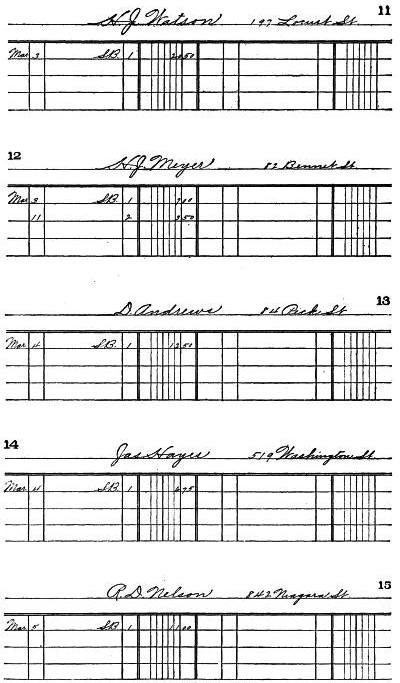 11
H.J. Watson 197 Locust St.
Mar 3 S.B. 1 20 50
12
H.J. Meyer 82 Bennet St.
Mar 3 S.B. 1 7 00
11 2 3 50
13
D. Andrews 84 Peck St
Mar 4 S.B. 1 12 50
14
Jas Hayes 519 Washington St.
Mar 4 S.B. 1 6 75
15
R.D. Nelson 842 Niagara St
Mar 5 S.B. 1 11 00